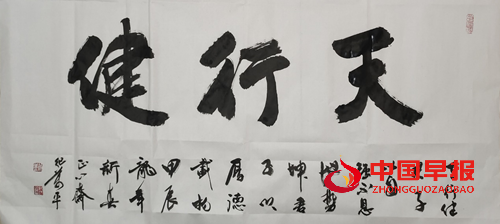 天行健
天行健
君子
强不息
地势
坤君
子以
厚德
载物
甲辰
龙年
新春
中国早报